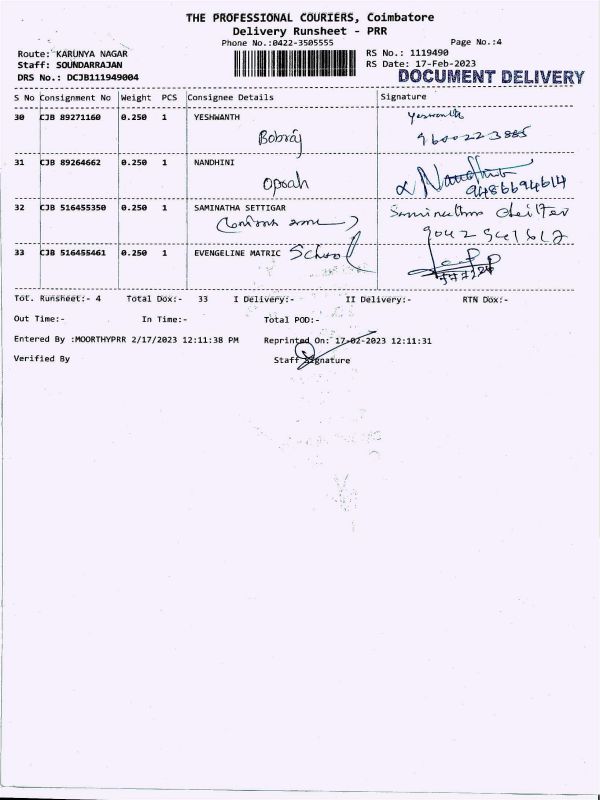 THE PROFESSIONAL COURIERS, Coimbatore
Delivery Runsheet - PRR
Phone No.:0422-3505555
Page No.:4
Route: KARUNYA NAGAR
RS No.: 1119490
Staff: SOUNDARRAJAN
RS Date: 17-Feb-2023
DRS No.: DCJB111949004
DOCUMENT DELIVERY
S No Consignment No Weight PCS Consignee Details Signature
30 CJB 89271160 0.250 1 YESHWANTH Yeshwanth
Bobraj 9600223885
31 CJB 89264662 0.250 1 NANDHINI Nandhini
9486694614
32 CJB 516455350 0.250 1 SAMINATHA SETTIGAR
33 CJB 516455461 0.250 1 EVENGELINE MATRIC School
Tot. Runsheet:- 4 Total Dox:- 33 I Delivery:- II Delivery:- RTN Dox:-
Out Time:- In Time:- Total POD:-
Entered By :MOORTHYPRR 2/17/2023 12:11:38 PM Reprinted On: 17-02-2023 12:11:31
Verified By Staff Signature